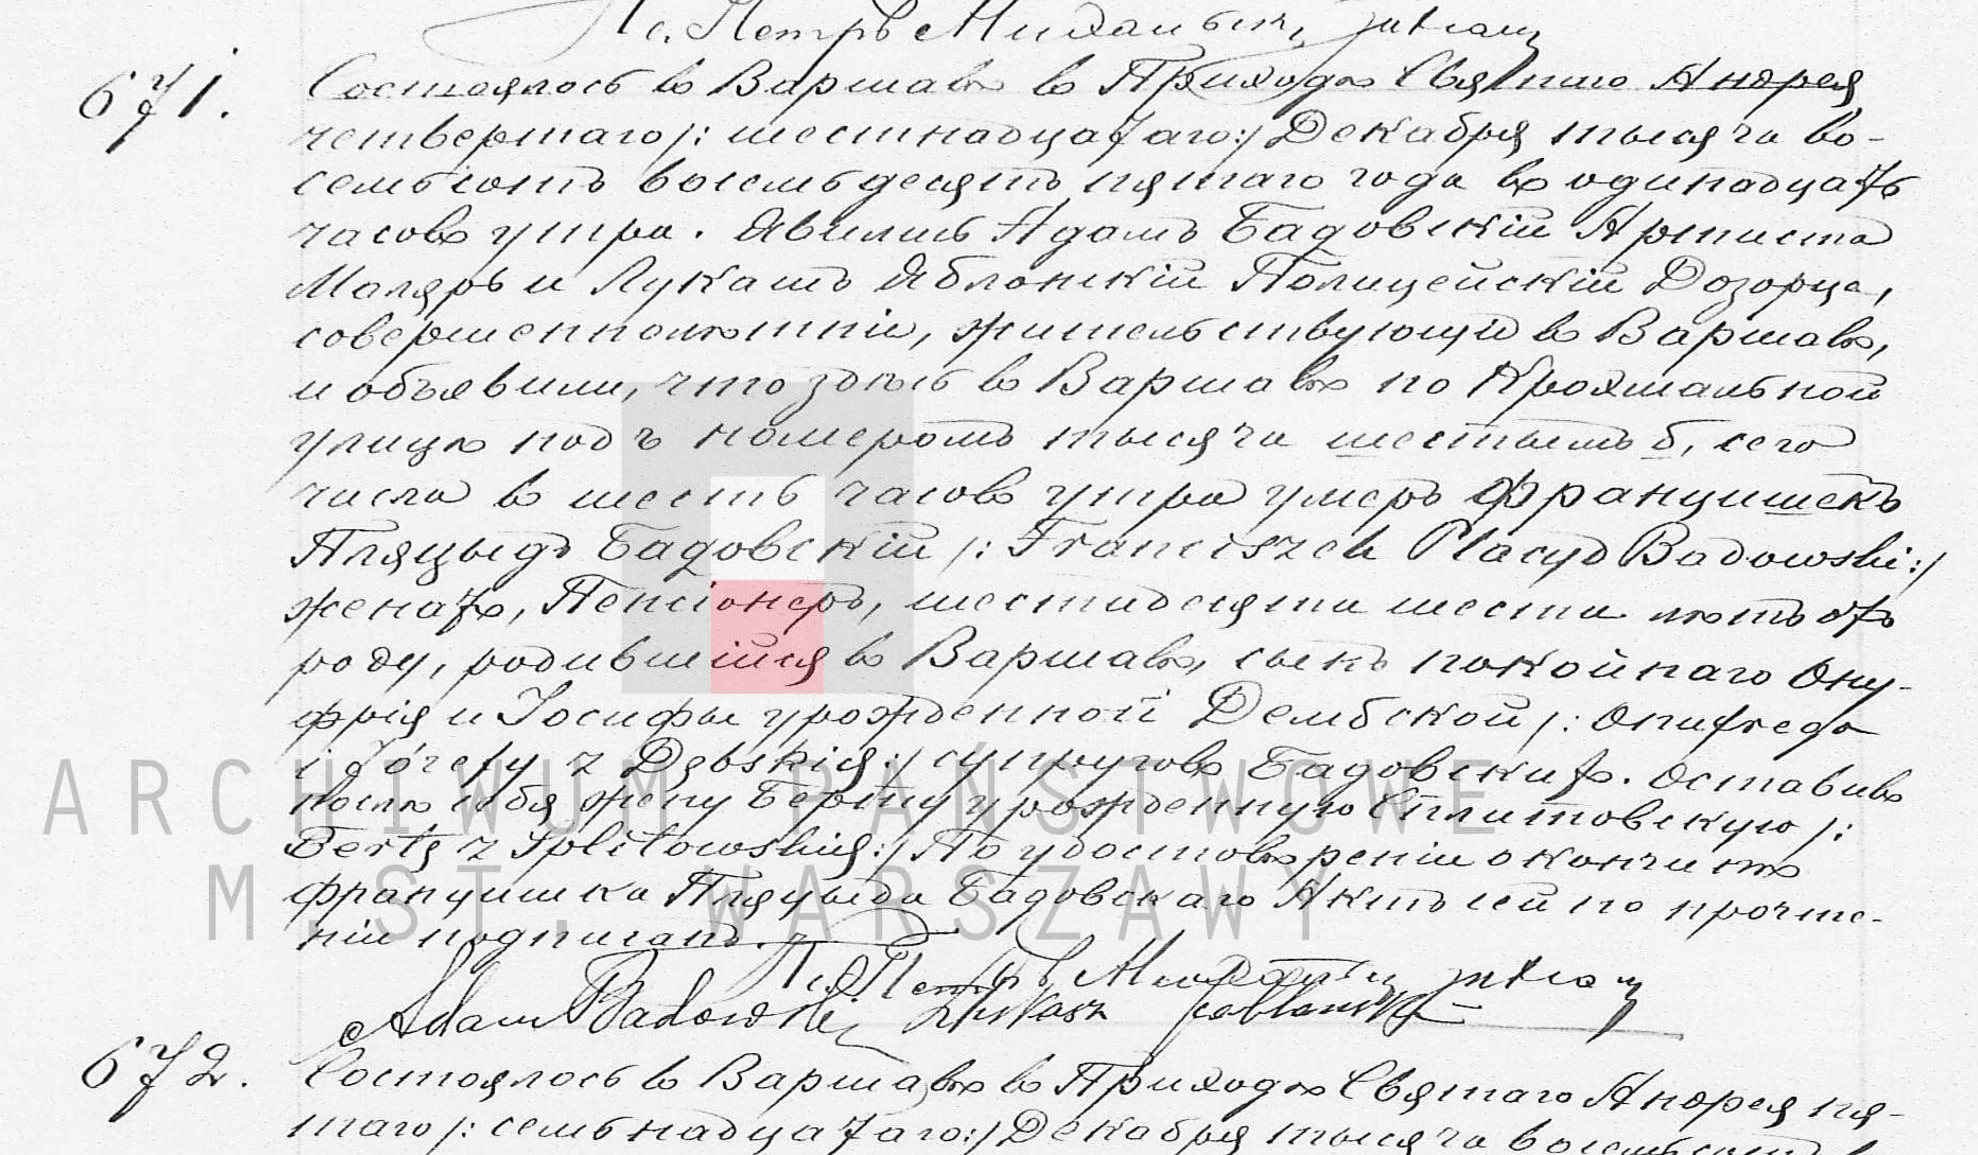 Кс. Петръ Михал
671.
Состоялось въ Варшавѣ въ Приходѣ Святаго Андрея
четвертаго /: шестнадцатаго :/ Декабря тысяча во-
семьсотъ восемьдесятъ пятаго года въ одинадцать
часовъ утра. Явились Адамъ Бадовскій Артиста
Маляръ и Лукашъ Яблонскій Полицейскій Дозорца,
совершеннолѣтніе, жительствующіе въ Варшавѣ,
и объявили, что здѣсь въ Варшавѣ по Крохмальной
улицѣ подъ номеромъ тысяча шестымъ б, сего
числа въ шесть часовъ утра умеръ Францишекъ
Пляцыдъ Бадовскій /: Franciszek Placyd Badowski :/
женатъ, Пенсіонеръ, шестидесяти шести лѣтъ отъ
роду, родившійся въ Варшавѣ, сынъ покойнаго Ону-
фрія и Іосифы урожденной Дембской /: Onufrego
i Józefy z Dębskich :/ супруговъ Бадовскихъ. Оставивъ
послѣ себя жену Берту урожденную Сплитовскую /:
Bertę z Splitowskich :/ По удостовѣреніи о кончинѣ
Францишка Пляцыда Бадовскаго Актъ сей по прочте-
ніи подписанъ.
Кс. Петръ
Adam Badowski Łukasz Jabłonski
672.
Состоялось въ Варшавѣ въ Приходѣ Святаго Андрея пя-
таго /: семьнадцатаго :/ Декабря тысяча восемьсотъ
ARCHIWUM PAŃSTWOWE
M.ST. WARSZAWY